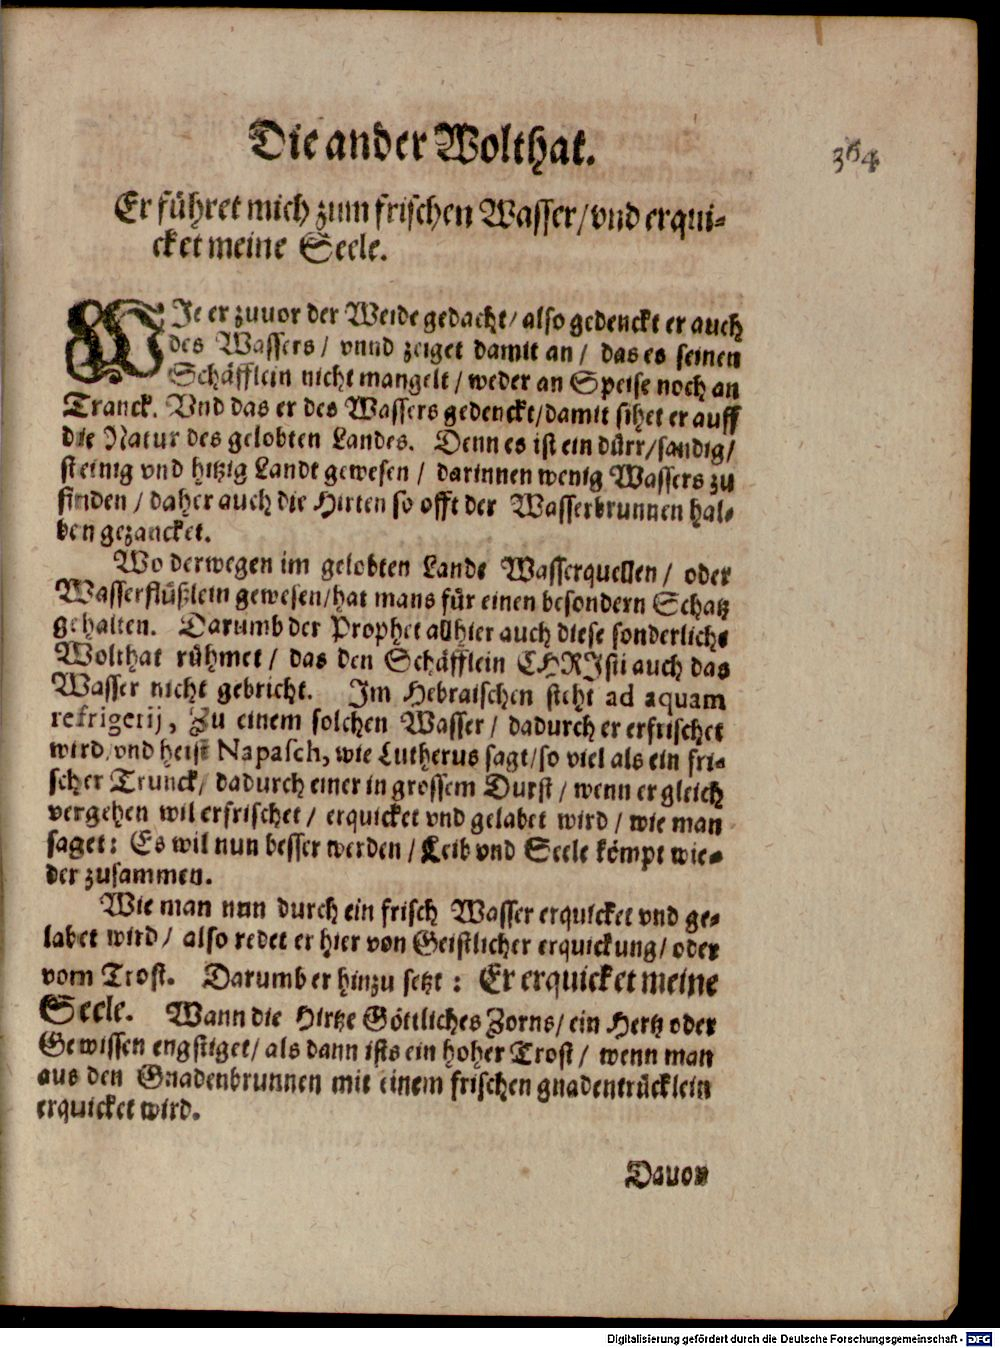 Die ander Wolthat.
364
Er führet mich zum frischen Wasser/ vnd erqui-
cket meine Seele.
WJe er zuuor der Weide gedacht/ also gedenckt er auch
des Wassers/ vnnd zeiget damit an/ das es seinen
Schäfflein nicht mangelt/ weder an Speise noch an
Tranck. Vnd das er des Wassers gedenckt/ damit sihet er auff
die Natur des gelobten Landes. Denn es ist ein dürr/ sandig/
steinig vnd hitzig Landt gewesen/ darinnen wenig Wassers zu
finden/ daher auch die Hirten so offt der Wasserbrunnen hal-
ben gezancket.
Wo derwegen im gelobten Lande Wasserquellen/ oder
Wasserflüßlein gewesen/ hat mans für einen besondern Schatz
gehalten. Darumb der Prophet allhier auch diese sonderliche
Wolthat rühmet/ das den Schäfflein CHRJsti auch das
Wasser nicht gebricht. Jm Hebraischen steht ad aquam
refrigerij, Zu einem solchen Wasser/ dadurch er erfrischet
wird/ vnd heist Napasch, wie Lutherus sagt/ so viel als ein fri-
scher Trunck/ dadurch einer in grossem Durst/ wenn er gleich
vergehen wil erfrischet/ erquicket vnd gelabet wird/ wie man
saget: Es wil nun besser werden/ Leib vnd Seele kömpt wie-
der zusammen.
Wie man nun durch ein frisch Wasser erquicket vnd ge-
labet wird/ also redet er hier von Geistlicher erquickung/ oder
vom Trost. Darumb er hinzu setzt: Er erquicket meine
Seele. Wann die Hirtze Göttliches Zorns/ ein Hertz oder
Gewissen engstiget/ als dann ists ein hoher Trost/ wenn man
aus den Gnadenbrunnen mit einem frischen gnadentrücklein
erquicket wird.
Dauon
Digitalisierung gefördert durch die Deutsche Forschungsgemeinschaft - DFG